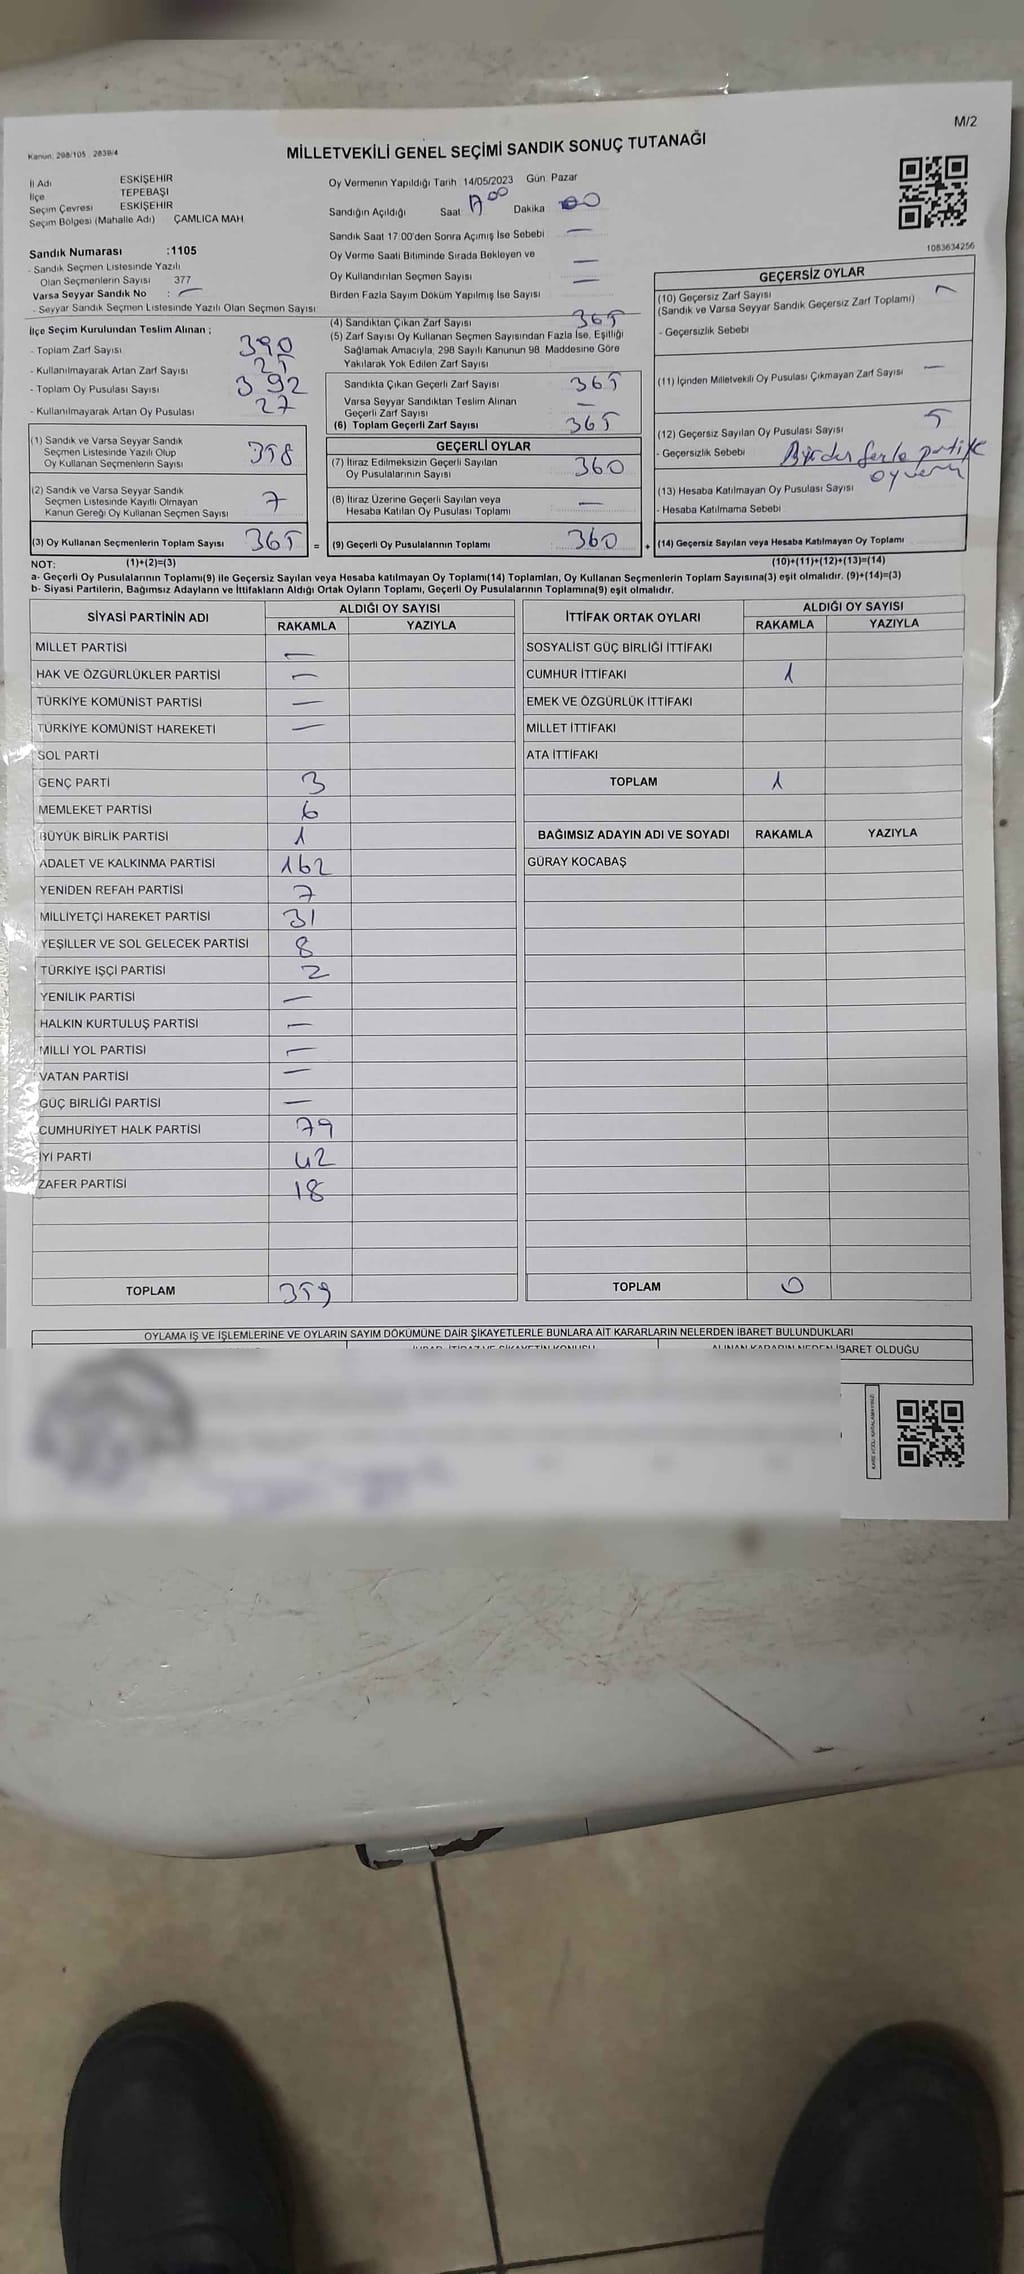 M/2
Kanun: 298/105 2839/4
MİLLETVEKİLİ GENEL SEÇİMİ SANDIK SONUÇ TUTANAĞI
İl Adı ESKİŞEHİR
İlçe TEPEBAŞI
Seçim Çevresi ESKİŞEHİR
Seçim Bölgesi (Mahalle Adı) ÇAMLICA MAH
Oy Vermenin Yapıldığı Tarih 14/05/2023 Gün Pazar
Sandığın Açıldığı Saat 17 00 Dakika 00
Sandık Saat 17:00'den Sonra Açımış İse Sebebi —
Oy Verme Saati Bitiminde Sırada Bekleyen ve
Oy Kullandırılan Seçmen Sayısı —
Birden Fazla Sayım Döküm Yapılmış İse Sayısı —
1083634256
Sandık Numarası :1105
- Sandık Seçmen Listesinde Yazılı
Olan Seçmenlerin Sayısı 377
Varsa Seyyar Sandık No : —
- Seyyar Sandık Seçmen Listesinde Yazılı Olan Seçmen Sayısı
İlçe Seçim Kurulundan Teslim Alınan ;
- Toplam Zarf Sayısı 390
- Kullanılmayarak Artan Zarf Sayısı 25
- Toplam Oy Pusulası Sayısı 392
- Kullanılmayarak Artan Oy Pusulası 27
(1) Sandık ve Varsa Seyyar Sandık
Seçmen Listesinde Yazılı Olup
Oy Kullanan Seçmenlerin Sayısı 358
(2) Sandık ve Varsa Seyyar Sandık
Seçmen Listesinde Kayıtlı Olmayan
Kanun Gereği Oy Kullanan Seçmen Sayısı 7
(3) Oy Kullanan Seçmenlerin Toplam Sayısı 365 =
(4) Sandıktan Çıkan Zarf Sayısı 365
(5) Zarf Sayısı Oy Kullanan Seçmen Sayısından Fazla İse, Eşitliği
Sağlamak Amacıyla, 298 Sayılı Kanunun 98. Maddesine Göre
Yakılarak Yok Edilen Zarf Sayısı
Sandıkta Çıkan Geçerli Zarf Sayısı 365
Varsa Seyyar Sandıktan Teslim Alınan
Geçerli Zarf Sayısı —
(6) Toplam Geçerli Zarf Sayısı 365
GEÇERLİ OYLAR
(7) İtiraz Edilmeksizin Geçerli Sayılan
Oy Pusulalarının Sayısı 360
(8) İtiraz Üzerine Geçerli Sayılan veya
Hesaba Katılan Oy Pusulası Toplamı —
(9) Geçerli Oy Pusulalarının Toplamı 360 +
GEÇERSİZ OYLAR
(10) Geçersiz Zarf Sayısı —
(Sandık ve Varsa Seyyar Sandık Geçersiz Zarf Toplamı)
- Geçersizlik Sebebi
(11) İçinden Milletvekili Oy Pusulası Çıkmayan Zarf Sayısı —
(12) Geçersiz Sayılan Oy Pusulası Sayısı 5
- Geçersizlik Sebebi Birden fazla partiye
(13) Hesaba Katılmayan Oy Pusulası Sayısı
- Hesaba Katılmama Sebebi
(14) Geçersiz Sayılan veya Hesaba Katılmayan Oy Toplamı
NOT: (1)+(2)=(3) (10)+(11)+(12)+(13)=(14)
a- Geçerli Oy Pusulalarının Toplamı(9) ile Geçersiz Sayılan veya Hesaba katılmayan Oy Toplamı(14) Toplamları, Oy Kullanan Seçmenlerin Toplam Sayısına(3) eşit olmalıdır. (9)+(14)=(3)
b- Siyasi Partilerin, Bağımsız Adayların ve İttifakların Aldığı Ortak Oyların Toplamı, Geçerli Oy Pusulalarının Toplamına(9) eşit olmalıdır.
SİYASİ PARTİNİN ADI ALDIĞI OY SAYISI
RAKAMLA YAZIYLA
MİLLET PARTİSİ —
HAK VE ÖZGÜRLÜKLER PARTİSİ —
TÜRKİYE KOMÜNİST PARTİSİ —
TÜRKİYE KOMÜNİST HAREKETİ —
SOL PARTİ
GENÇ PARTİ 3
MEMLEKET PARTİSİ 6
BÜYÜK BİRLİK PARTİSİ 1
ADALET VE KALKINMA PARTİSİ 162
YENİDEN REFAH PARTİSİ 7
MİLLİYETÇİ HAREKET PARTİSİ 31
YEŞİLLER VE SOL GELECEK PARTİSİ 8
TÜRKİYE İŞÇİ PARTİSİ 2
YENİLİK PARTİSİ —
HALKIN KURTULUŞ PARTİSİ —
MİLLİ YOL PARTİSİ —
VATAN PARTİSİ —
GÜÇ BİRLİĞİ PARTİSİ —
CUMHURİYET HALK PARTİSİ 79
İYİ PARTİ 42
ZAFER PARTİSİ 18
TOPLAM 359
İTTİFAK ORTAK OYLARI ALDIĞI OY SAYISI
RAKAMLA YAZIYLA
SOSYALİST GÜÇ BİRLİĞİ İTTİFAKI
CUMHUR İTTİFAKI 1
EMEK VE ÖZGÜRLÜK İTTİFAKI
MİLLET İTTİFAKI
ATA İTTİFAKI
TOPLAM 1
BAĞIMSIZ ADAYIN ADI VE SOYADI RAKAMLA YAZIYLA
GÜRAY KOCABAŞ
TOPLAM 0
OYLAMA İŞ VE İŞLEMLERİNE VE OYLARIN SAYIM DÖKÜMÜNE DAİR ŞİKAYETLERLE BUNLARA AİT KARARLARIN NELERDEN İBARET BULUNDUKLARI
İHBAR, İTİRAZ VE ŞİKAYETİN KONUSU ALINAN KARARIN NEDEN İBARET OLDUĞU